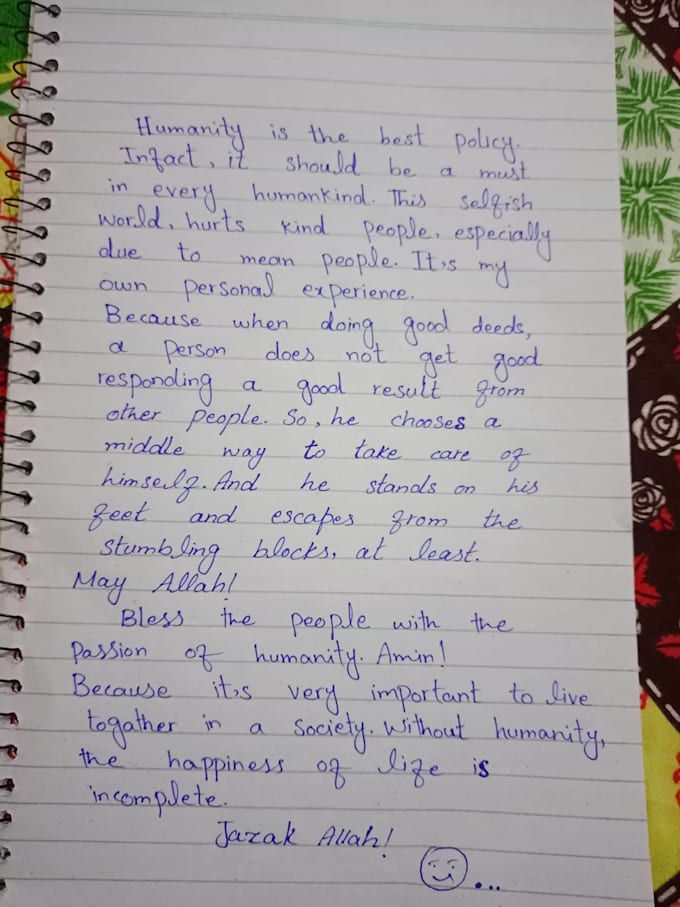 Humanity is the best policy.
Infact, it should be a must
in every humankind. This selfish
world, hurts kind people, especially
due to mean people. It,s my
own personal experience.
Because when doing good deeds,
a person does not get good
responding a good result from
other people. So, he chooses a
middle way to take care of
himself. And he stands on his
feet and escapes from the
stumbling blocks, at least.
May Allah!
Bless the people with the
passion of humanity. Amin!
Because it,s very important to live
togather in a society. Without humanity,
the happiness of life is
incomplete.
Jazak Allah!
...